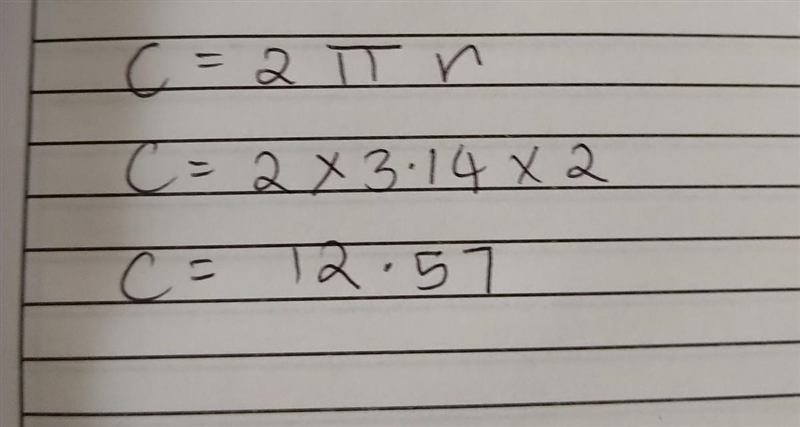 C = 2 π r
C = 2 × 3·14 × 2
C = 12·57